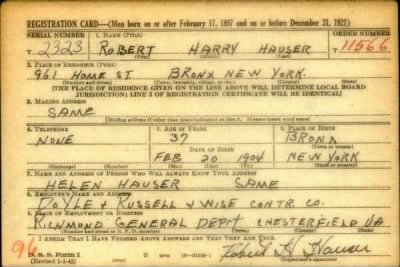 REGISTRATION CARD—(Men born on or after February 17, 1897 and on or before December 31, 1921)
SERIAL NUMBER 1. NAME (Print) ORDER NUMBER
T 2323 ROBERT HARRY HAUSER T11566
2. PLACE OF RESIDENCE (Print)
961 HOME ST. BRONX NEW YORK.
(Number and street) (Town, township, village, or city) (County) (State)
[THE PLACE OF RESIDENCE GIVEN ON THE LINE ABOVE WILL DETERMINE LOCAL BOARD
JURISDICTION; LINE 2 OF REGISTRATION CERTIFICATE WILL BE IDENTICAL]
3. MAILING ADDRESS
SAME
4. TELEPHONE 5. AGE IN YEARS 6. PLACE OF BIRTH
NONE 37 BRONX
DATE OF BIRTH
FEB 20 1904 NEW YORK
(Exchange) (Number) (Mo.) (Day) (Yr.) (State or country)
7. NAME AND ADDRESS OF PERSON WHO WILL ALWAYS KNOW YOUR ADDRESS
HELEN HAUSER SAME
8. EMPLOYER'S NAME AND ADDRESS
DOYLE & RUSSELL & WISE CONTR. CO.
9. PLACE OF EMPLOYMENT OR BUSINESS
RICHMOND GENERAL DEPOT CHESTERFIELD VA
I AFFIRM THAT I HAVE VERIFIED ABOVE ANSWERS AND THAT THEY ARE TRUE.
96
D. S. S. Form 1
(Revised 1-1-42) Robert H. Hauser